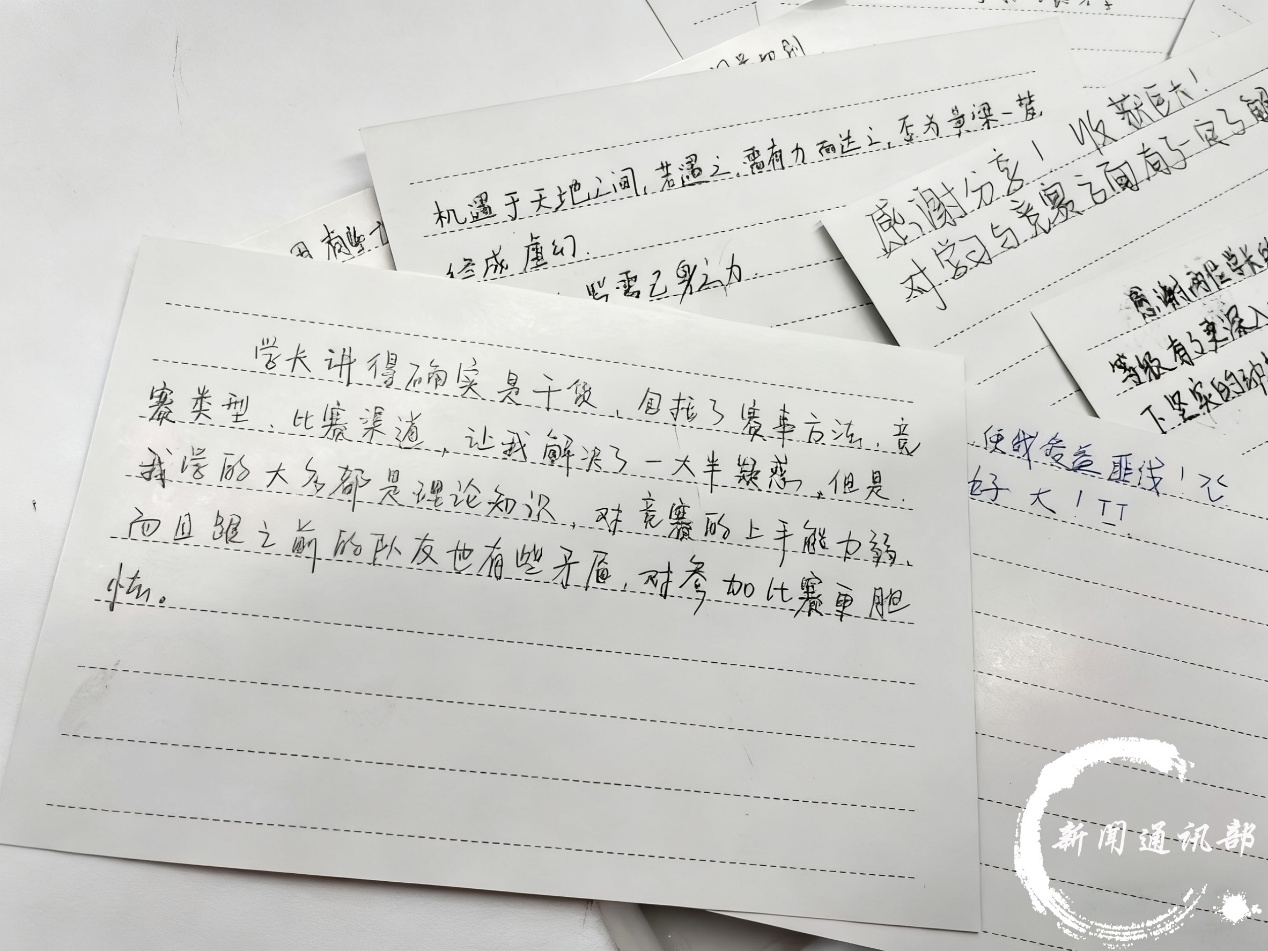 机遇于天地之间,若遇之,需有力而达之,否为黄梁一梦
终成虚幻.
需己身之力.
感谢分享！收获巨大！
对学习与竞赛方面有了一定了解
感谢两位学长的
等级有了更深入
下坚实的
使我受益匪浅！
好大！
学长讲得确实是干货，包括了赛事方法、竞
赛类型、比赛渠道，让我解决了一大半疑惑，但是
我学的大多都是理论知识，对竞赛的上手能力弱、
而且跟之前的队友也有些矛盾，对参加比赛更胆
怯。
新闻通讯部